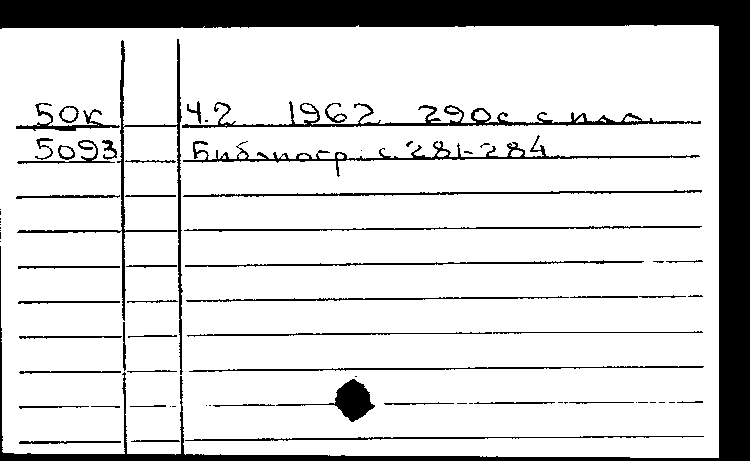 50к Ч.2 1962 290с с илл.
5093 Библиогр. с. 281-284